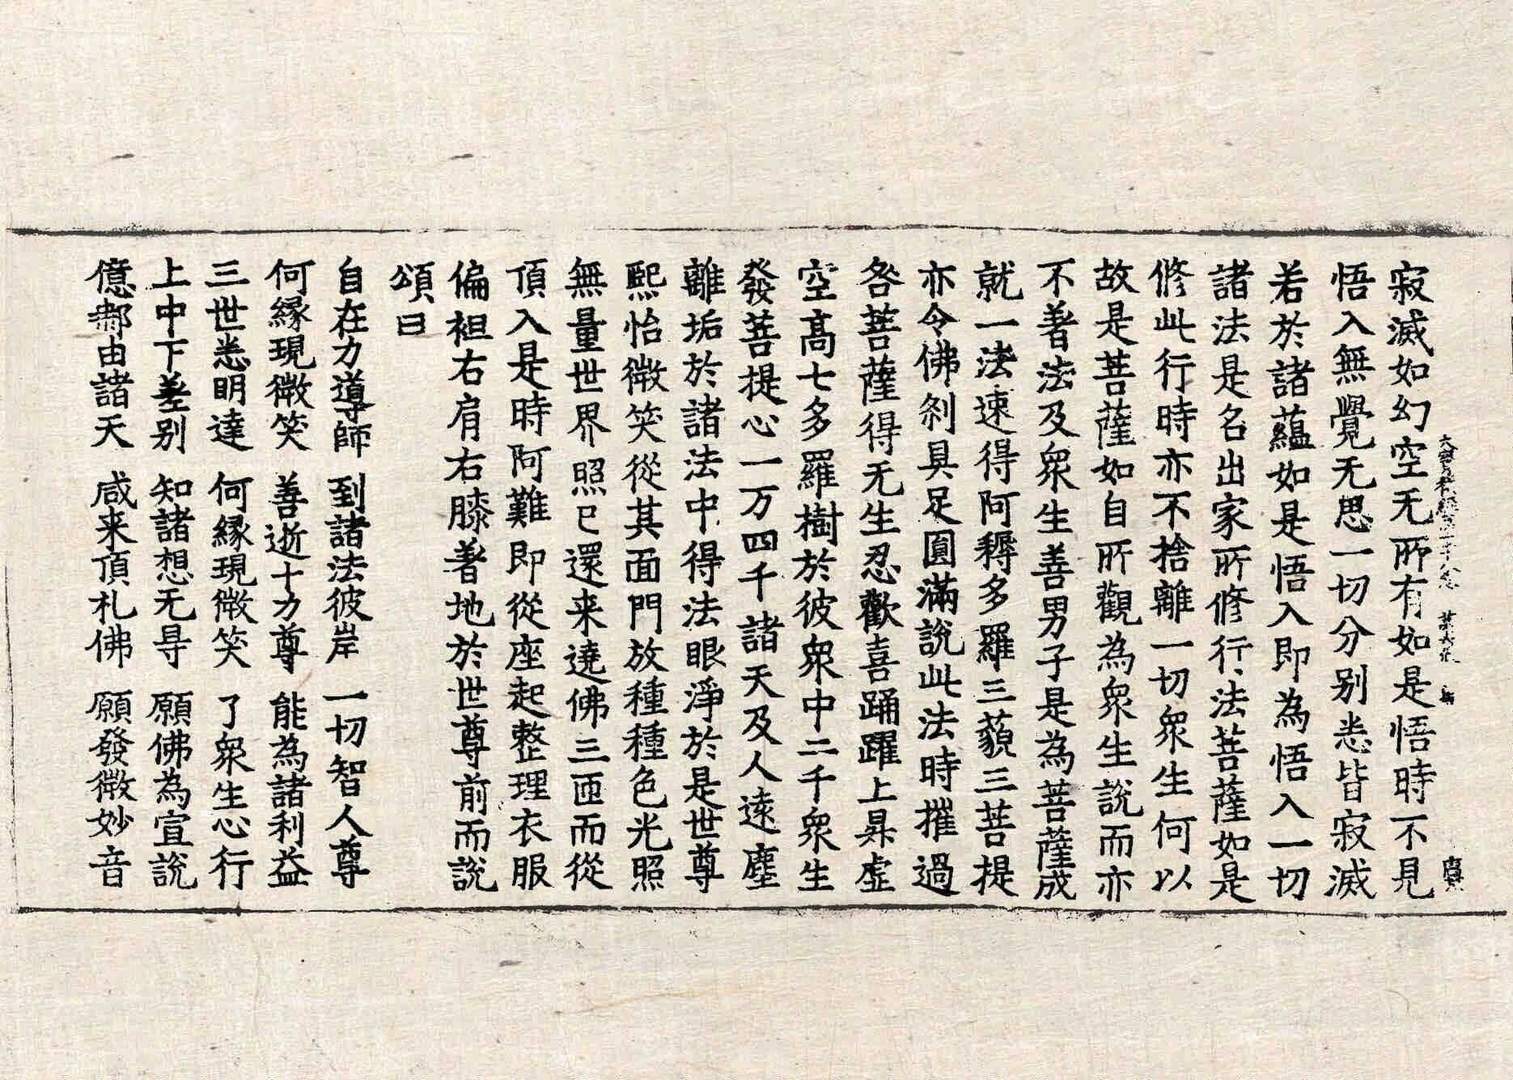 寂滅如幻空无所有如是悟時不見
悟入無覺无思一切分别悉皆寂滅
若於諸蘊如是悟入即為悟入一切
諸法是名出家所修行法菩薩如是
修此行時亦不捨離一切衆生何以
故是菩薩如自所觀為衆生說而亦
不著法及衆生善男子是為菩薩成
就一法速得阿耨多羅三藐三菩提
亦令佛刹具足圓滿說此法時摧過
咎菩薩得无生忍歡喜踊躍上昇虛
空高七多羅樹於彼衆中二千衆生
發菩提心一万四千諸天及人遠塵
離垢於諸法中得法眼淨於是世尊
熙怡微笑從其面門放種種色光照
無量世界照已還来遶佛三匝而從
頂入是時阿難即從座起整理衣服
偏袒右肩右膝著地於世尊前而說
頌曰
自在力導師 到諸法彼岸 一切智人尊
何緣現微笑 善逝十力尊 能為諸利益
三世悉明達 何緣現微笑 了衆生心行
上中下差别 知諸想无㝵 願佛為宣說
億那由諸天 咸来頂礼佛 願發微妙音